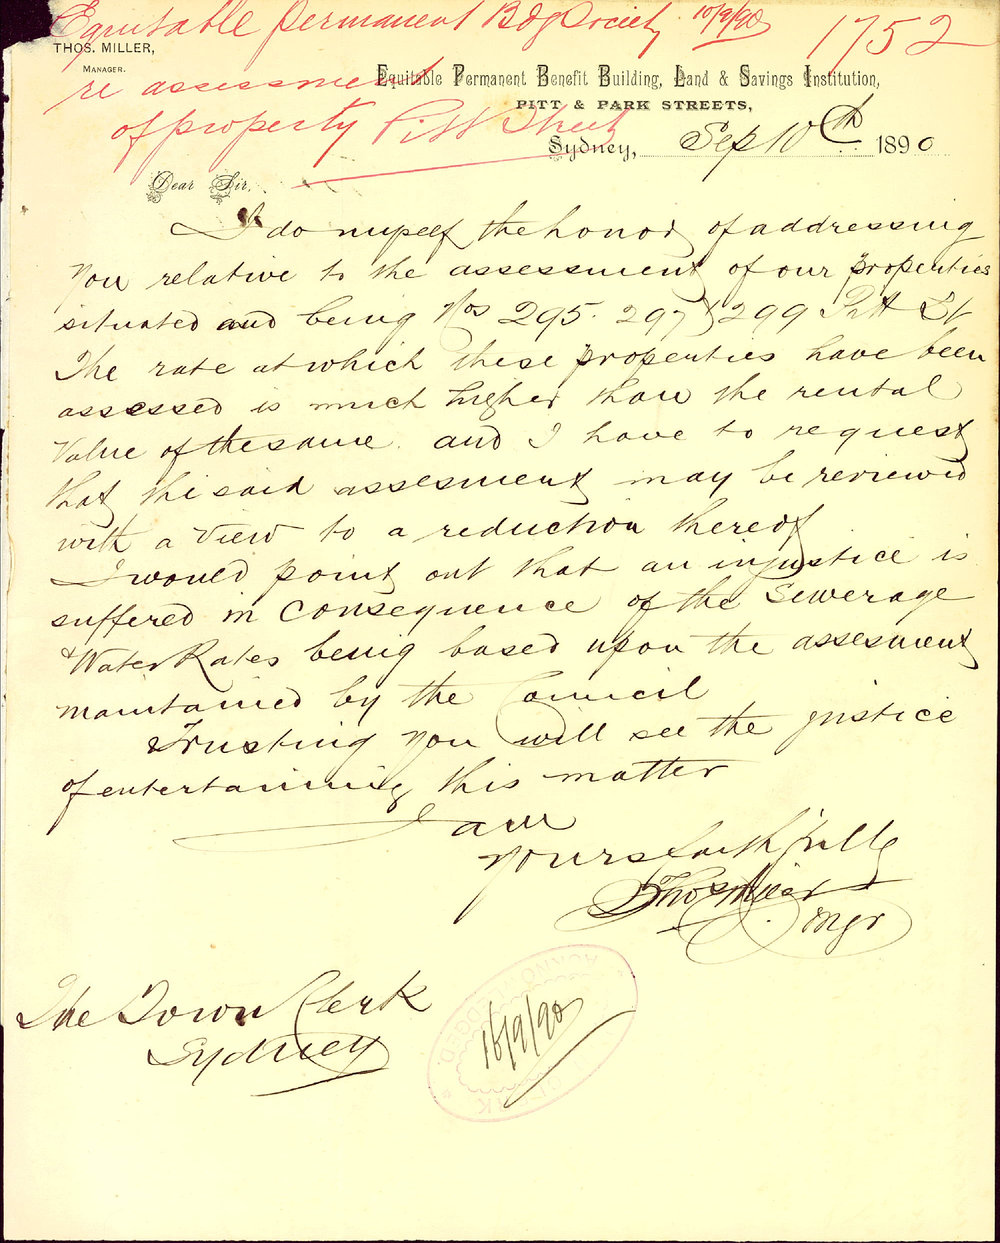 Equitable Permanent Bdg Society 10/9/90 1752
THOS. MILLER,
MANAGER.
re assessment
of property Pitt Street
Equitable Permanent Benefit Building, Land & Savings Institution,
PITT & PARK STREETS,
Sydney, Sep 10th 1890
Dear Sir,
I do myself the honor of addressing
you relative to the assessment of our properties
situated and being Nos 295. 297 & 299 Pitt St
The rate at which these properties have been
assessed is much higher than the rental
value of the same. and I have to request
that the said assesment may be reviewed
with a view to a reduction thereof
I would point out that an injustice is
suffered in consequence of the Sewerage
& Water Rates being based upon the assesment
maintained by the Council
Trusting you will see the justice
of entertaining this matter
I am
Yours faithfully
Thos Miller
Mgr
The Town Clerk
Sydney
ACKNOWLEDGED.
16/9/90
TOWN CLERK